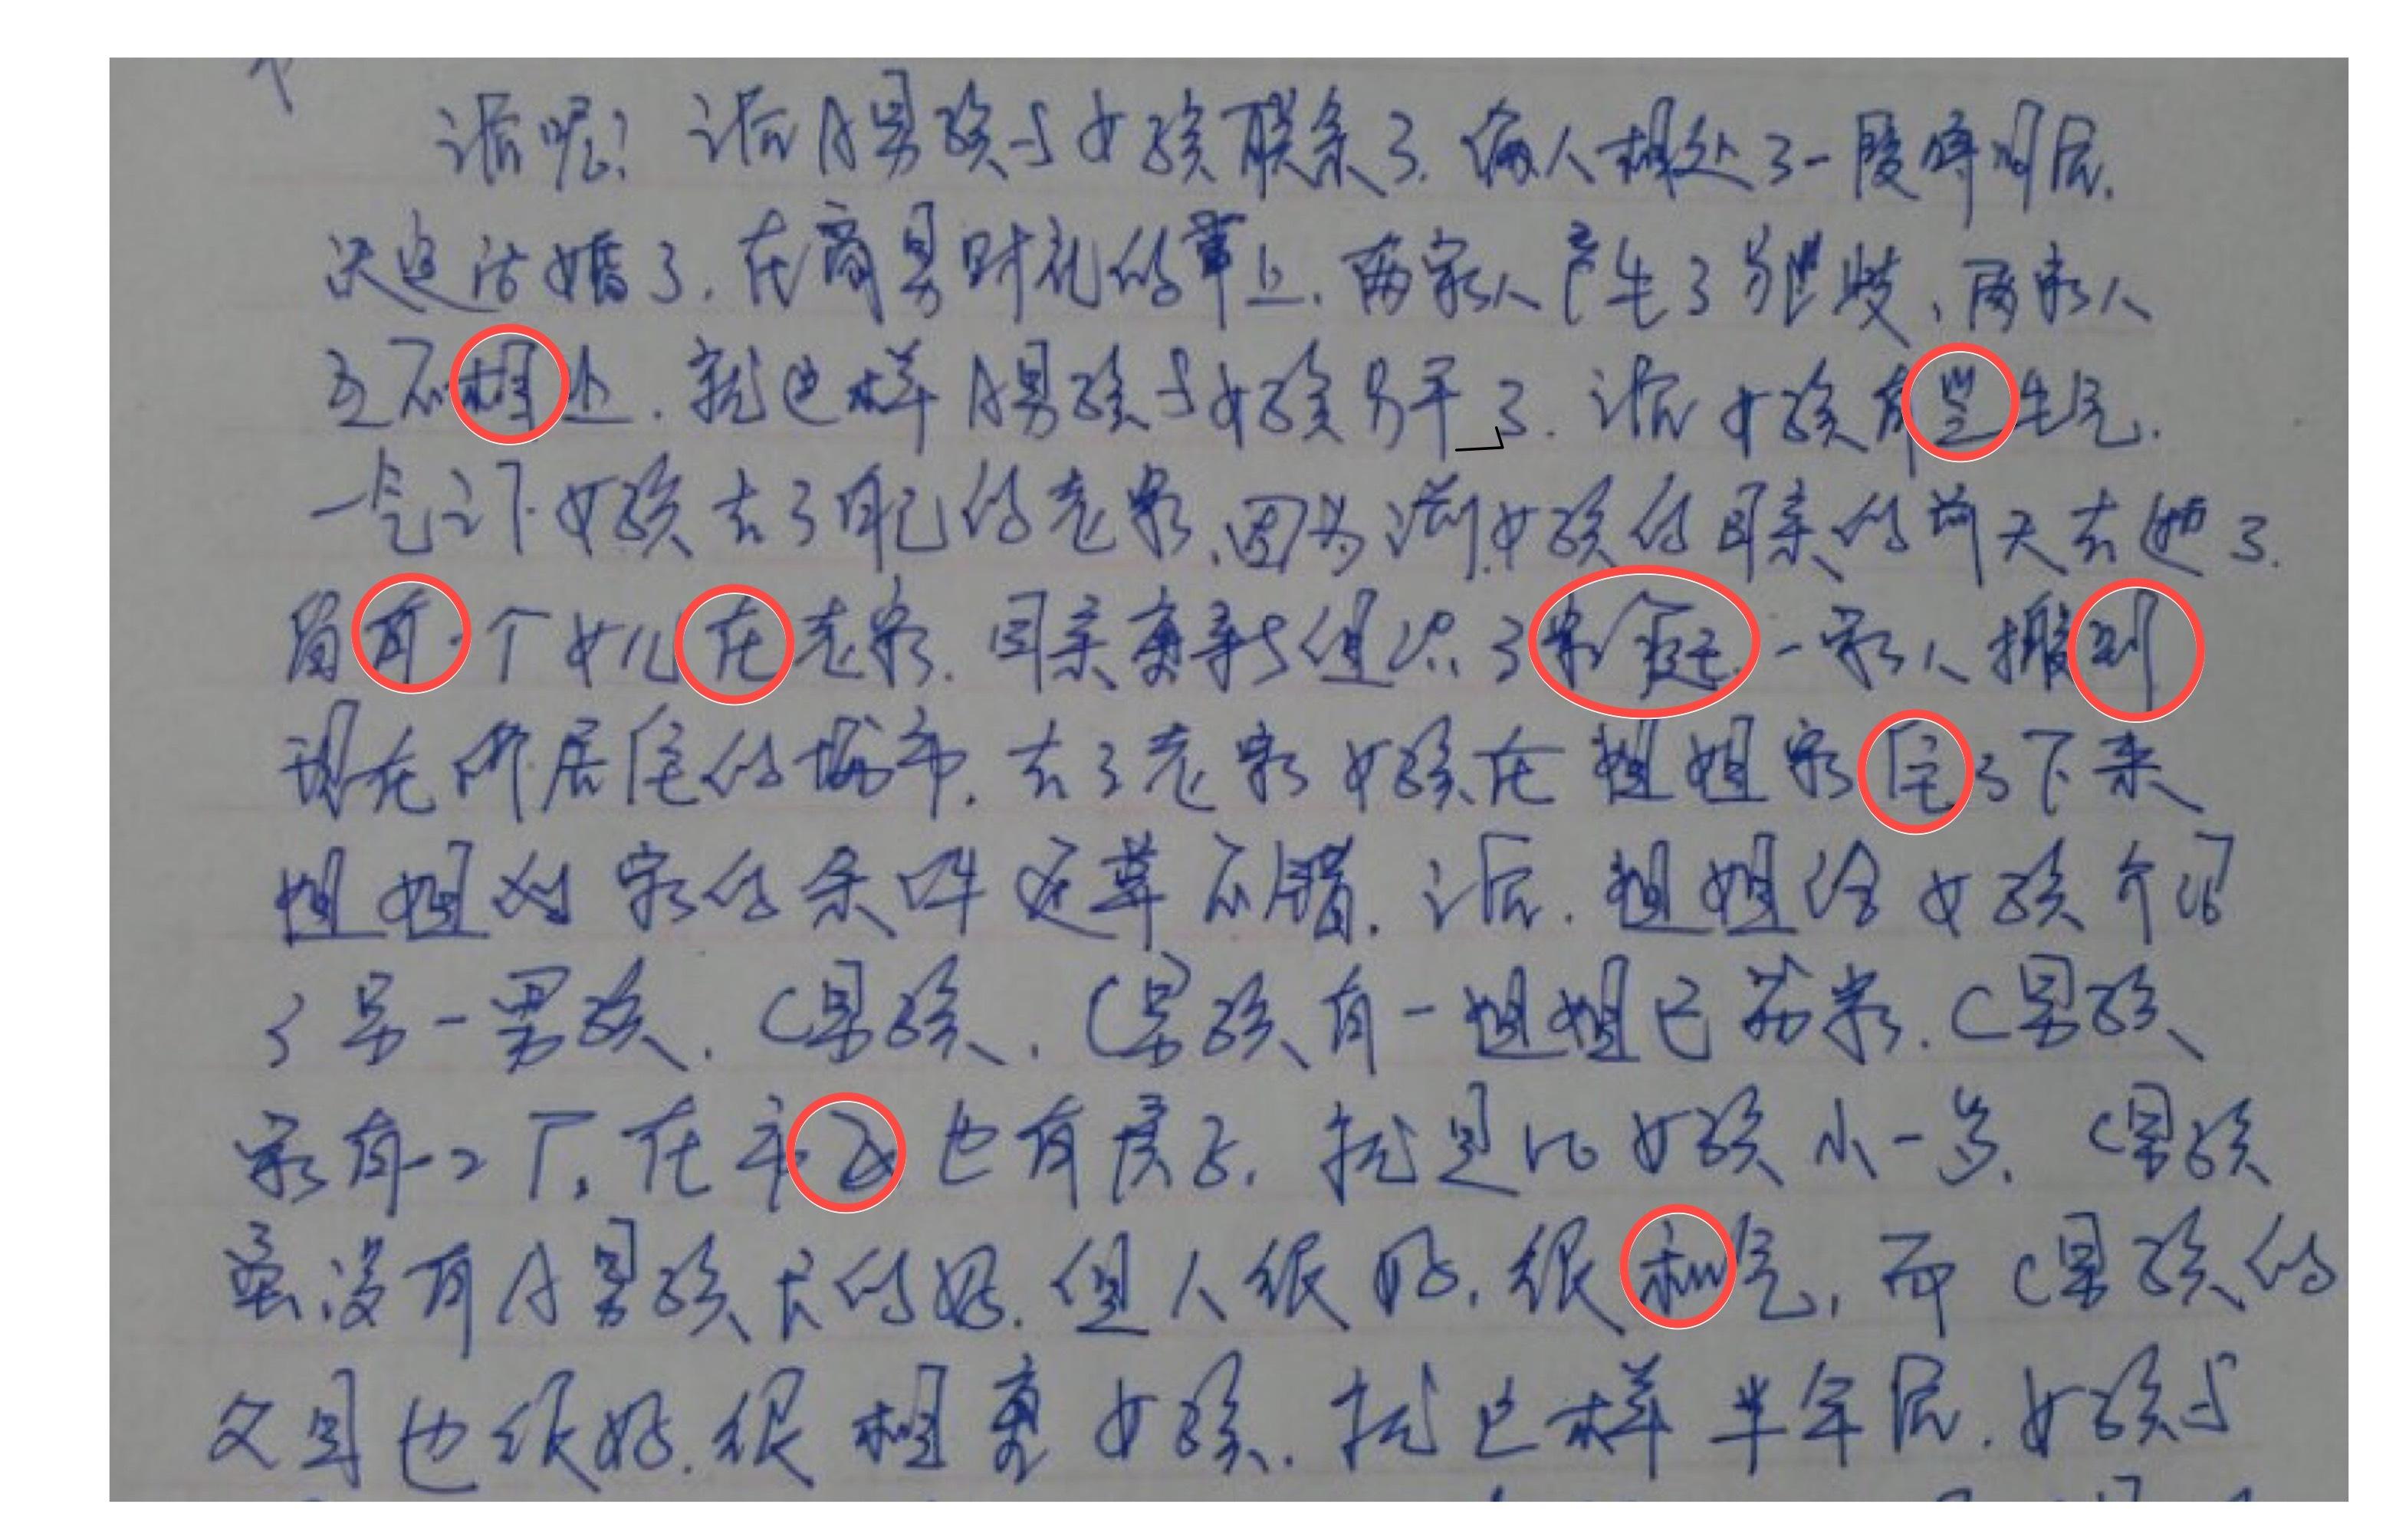 个
后呢?后A男孩与女孩联系了.俩人相处了一段时间后.
决定结婚了.在商男财礼的事上.两家人产生了分歧、两家人
互不相让.就这样A男孩与女孩分手了.后女孩有些生气.
一气之下女孩去了自己的老家.因为女孩的母亲的前夫去世了.
留有一个女儿在老家.母亲重新组识了家庭.一家人搬到
现在所居住的城市.去了老家女孩在姐姐家住了下来
姐姐的家的条件还算不错.后.姐姐给女孩介绍
了另一男孩.C男孩.C男孩有一姐姐已结家.C男孩
家有一工厂.在市区也有房子.就是比女孩小一岁.C男孩
虽没有A男孩长的好.但人很好.很和气,而C男孩的
父母也很好.很相重女孩.就这样半年后.女孩与